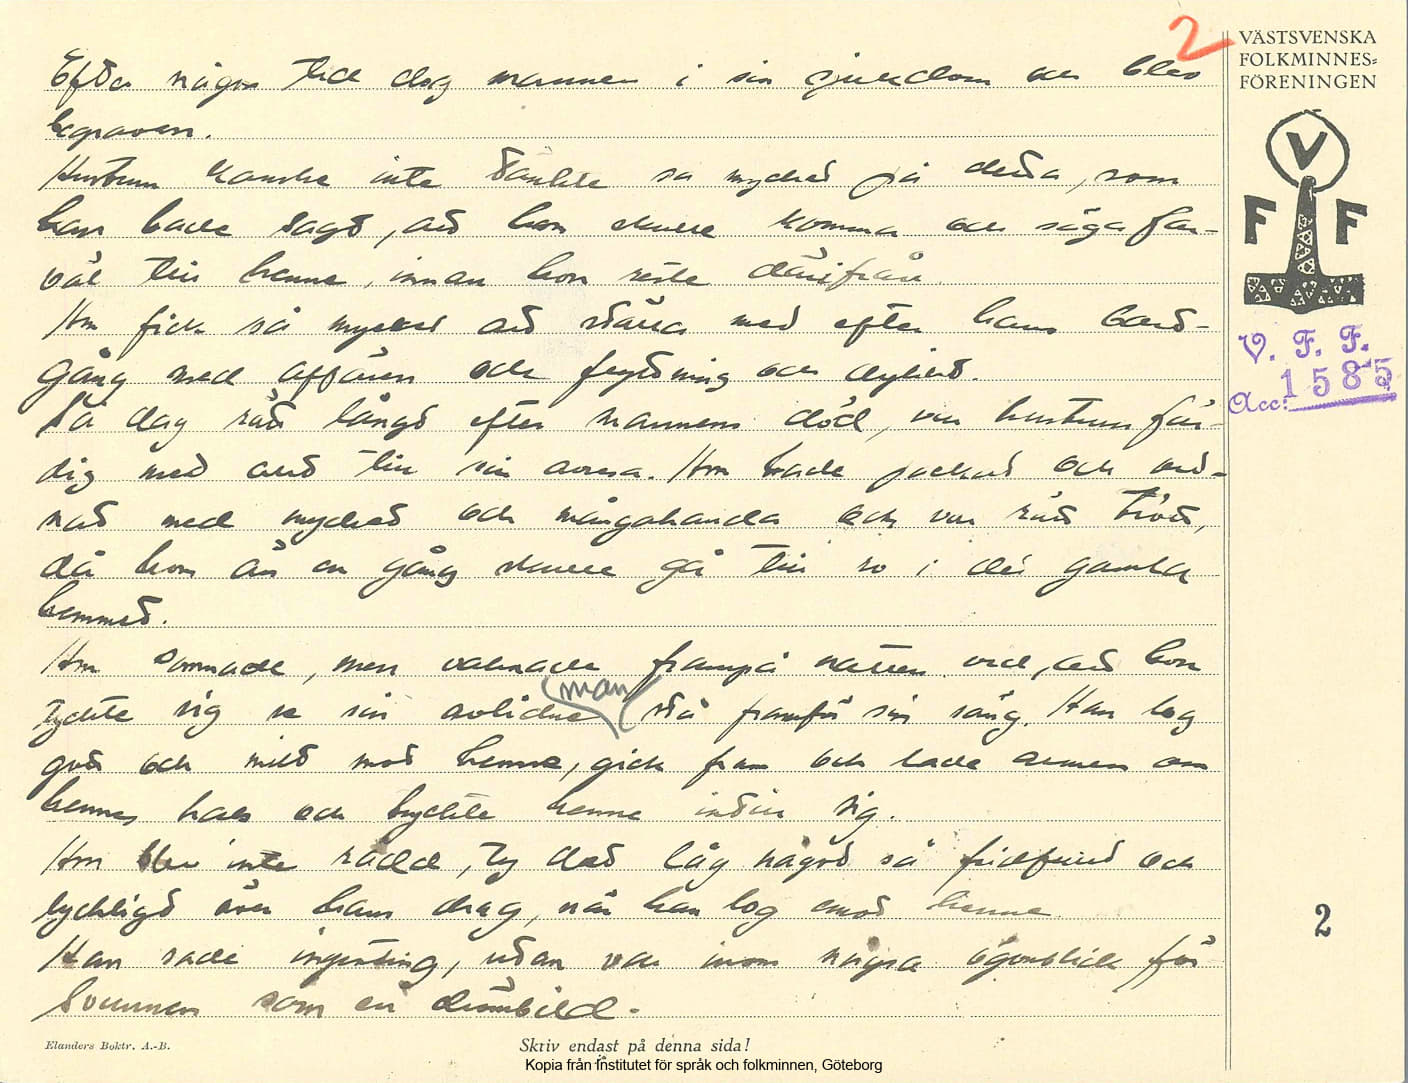 2
VÄSTSVENSKA
FOLKMINNES-
FÖRENINGEN
V
F F
V. F. F.
Acc: 1585
Efter någon tid dog mannen i sin sjukdom och blev
begraven.
Hustrun kanske inte tänkte så mycket på detta, som
han hade sagt, att hon skulle komma och säga far-
väl till henne, innan hon reste därifrån.
Hon fick så mycket att ställa med efter hans bort-
gång med affären och flyttning och dylikt.
En dag rätt långt efter mannens död, var hustrun fär-
dig med allt till sin avresa. Hon hade packat och ord-
nat med mycket och mångahanda och var rätt trött,
då hon än en gång skulle gå till ro i det gamla
hemmet.
Hon somnade, men vaknade frampå natten vid, att hon
tyckte sig se sin avlidne man stå framför sin säng. Han log
gott och milt mot henne, gick fram och lade armen om
hennes hals och tryckte henne intill sig.
Hon blev inte rädd, ty det låg något så fridfullt och
lyckligt över hans drag, när han log emot henne.
Han sade ingenting, utan var inom några ögonblick för-
svunnen som en drömbild.
2
Elanders Boktr. A.-B.
Skriv endast på denna sida!
Kopia från Institutet för språk och folkminnen, Göteborg